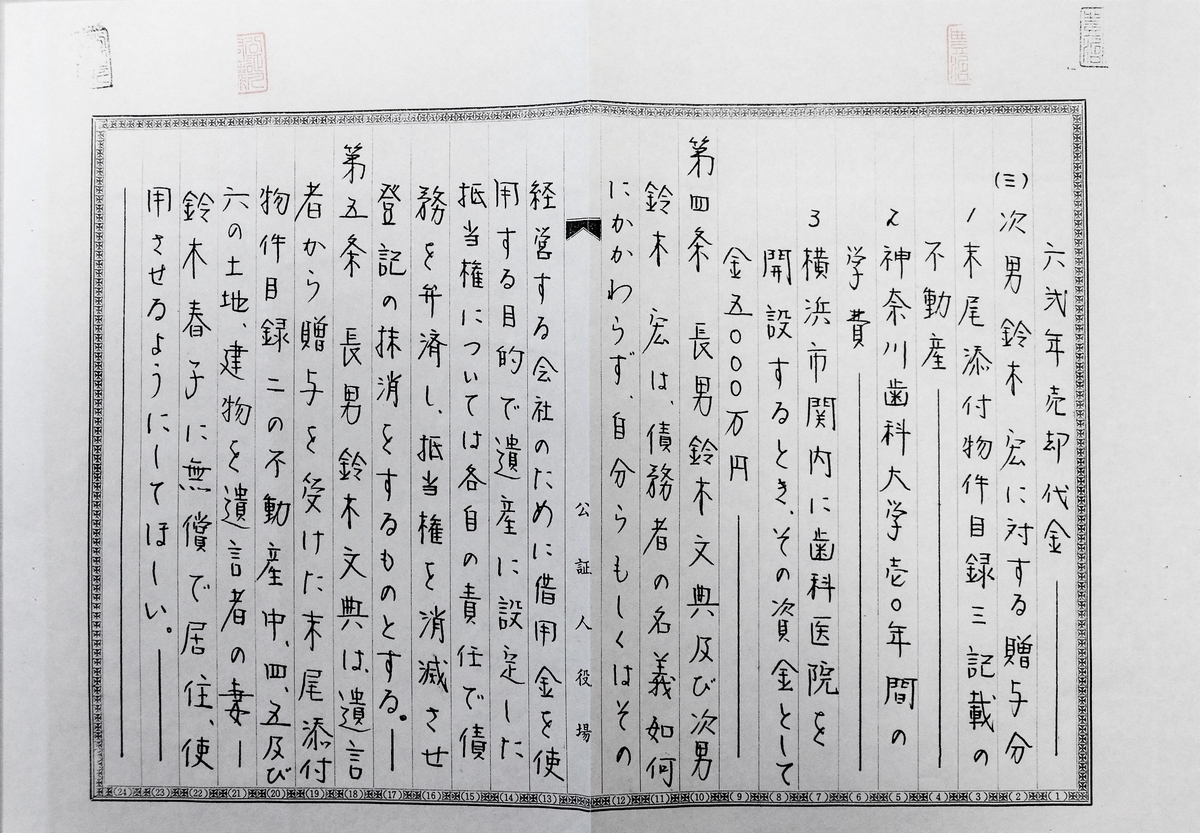 六弐年売却代金
(三)次男鈴木 宏に対する贈与分
1末尾添付物件目録三記載の
不動産
2神奈川歯科大学壱〇年間の
学費
3横浜市関内に歯科医院を
開設するとき、その資金として
金五〇〇〇万円
第四条 長男鈴木文典及び次男
鈴木 宏は、債務者の名義如何
にかかわらず、自分らもしくはその
公証人役場
経営する会社のために借用金を使
用する目的で遺産に設定した
抵当権については各自の責任で債
務を弁済し、抵当権を消滅させ
登記の抹消をするものとする。
第五条 長男鈴木文典は、遺言
者から贈与を受けた末尾添付
物件目録二の不動産中、四、五及び
六の土地、建物を遺言者の妻
鈴木春子に無償で居住、使
用させるようにしてほしい。
(1)
(2)
(3)
(4)
(5)
(6)
(7)
(8)
(9)
(10)
(11)
(12)
(13)
(14)
(15)
(16)
(17)
(18)
(19)
(20)
(21)
(22)
(23)
(24)